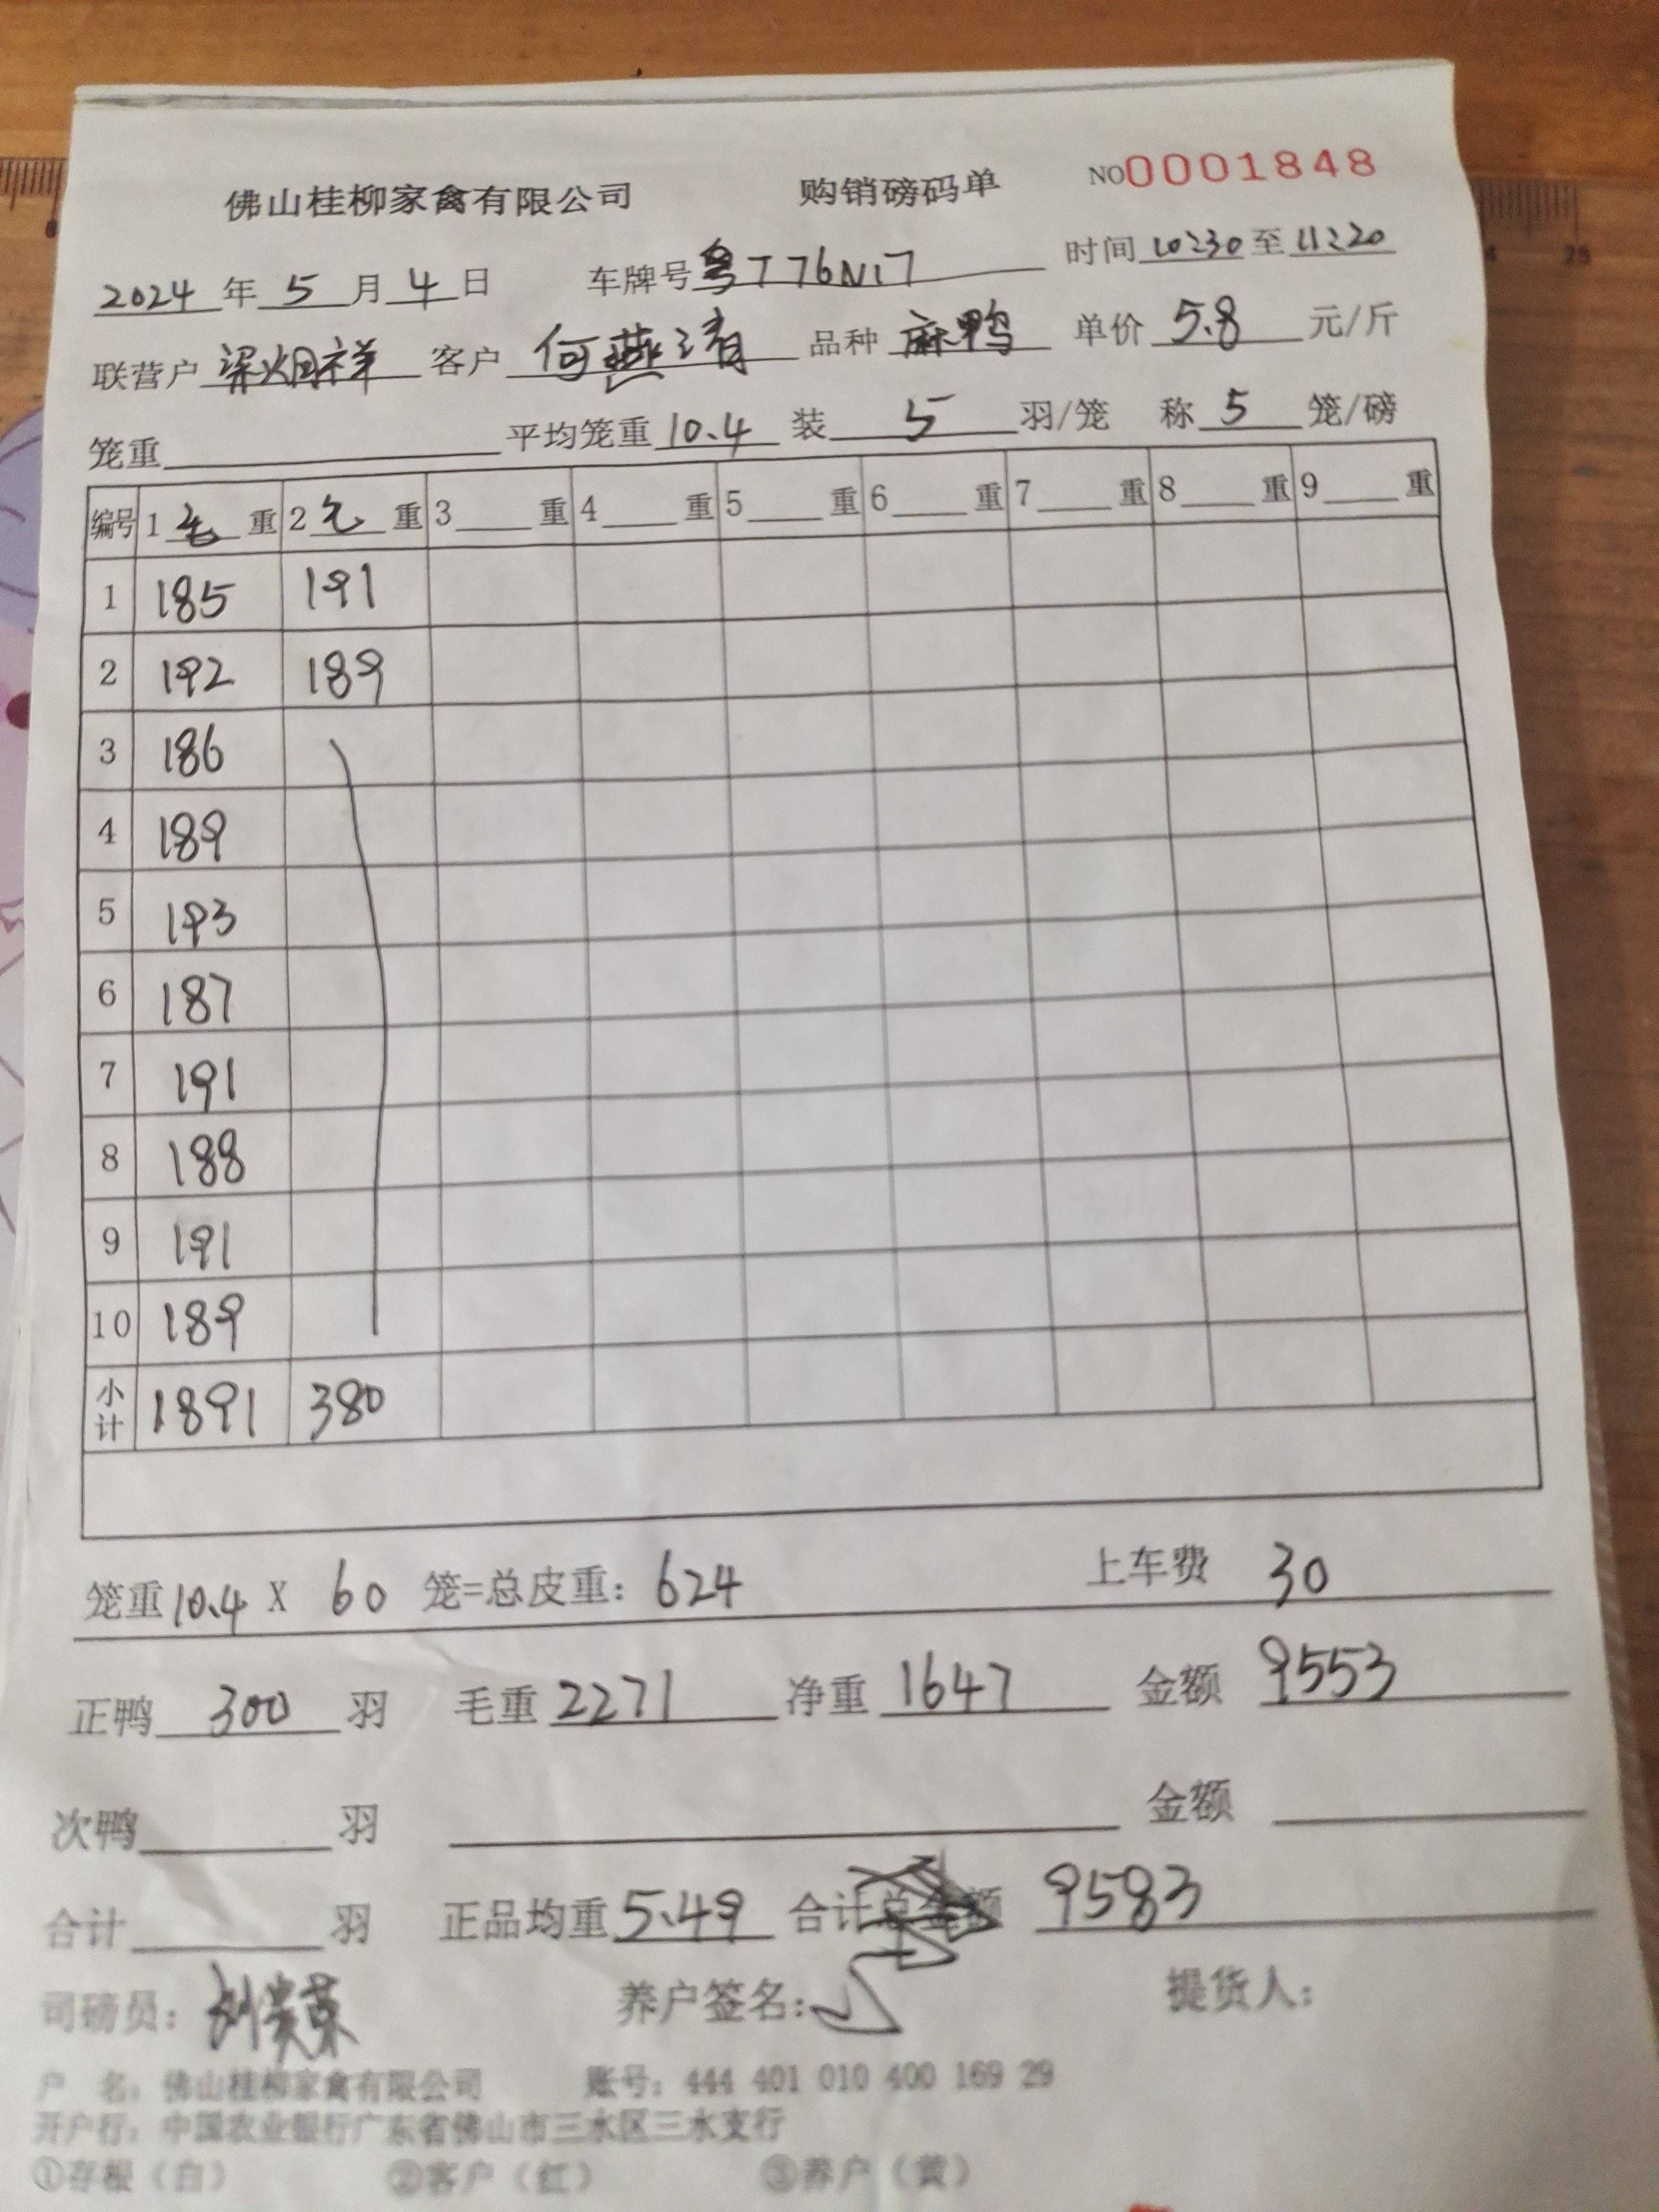 佛山桂柳家禽有限公司 购销磅码单 NO0001848
2024年5月4日 车牌号粤T76N17 时间10:30至11:20
联营户梁烟祥 客户何燕清 品种麻鸭 单价5.8元/斤
笼重 平均笼重10.4 装5羽/笼 称5笼/磅
编号 1毛重 2毛重 3重 4重 5重 6重 7重 8重 9重
1 185 191
2 192 189
3 186
4 189
5 193
6 187
7 191
8 188
9 191
10 189
小计 1891 380
笼重10.4X60笼=总皮重：624 上车费30
正鸭300羽 毛重2271 净重1647 金额9553
次鸭 羽 金额
合计 羽 正品均重5.49 合计总金额9583
司磅员：刘贵荣 养户签名： 提货人：
户 名：佛山桂柳家禽有限公司 账号：444 401 010 400 169 29
开户行：中国农业银行广东省佛山市三水区三水支行
①存根（白） ②客户（红） ③养户（黄）